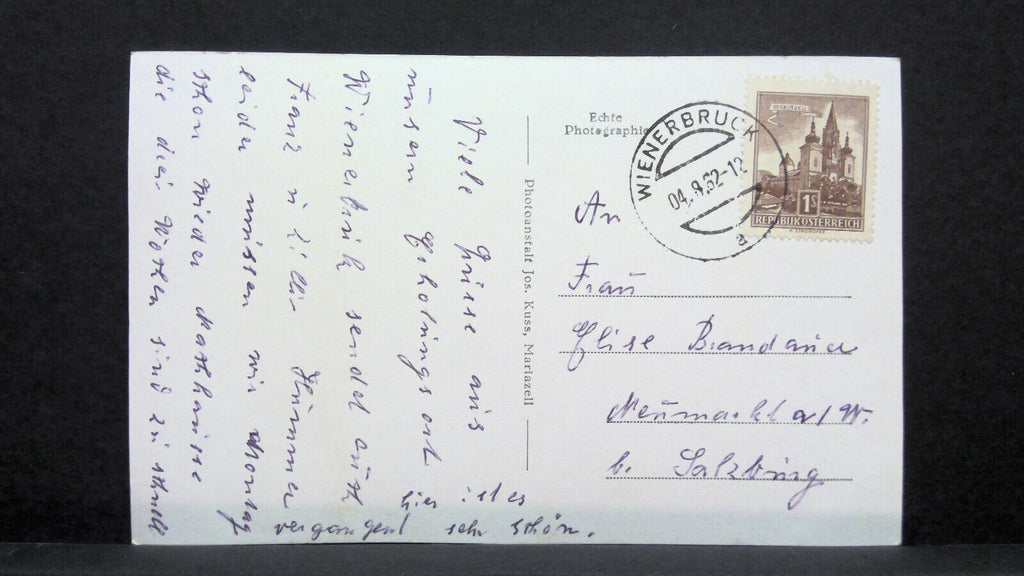 Viele Grüsse aus
unsern Erholungsort
Wienerbruk sendet auch
Franz u Lilli Hummer
leider müssen wir Montag
schon wieder Nachhause
die drei Wochen sind zu schnell
vergangen!
hier ist es
sehr schön.
Photoanstalt Jos. Kuss, Mariazell
Echte
Photographie
WIENERBRUCK
04.8.62-12
a
MARIAZELL
1S
REPUBLIK ÖSTERREICH
An
Frau
Elise Brandauer
Neumarkt a/W.
b. Salzburg